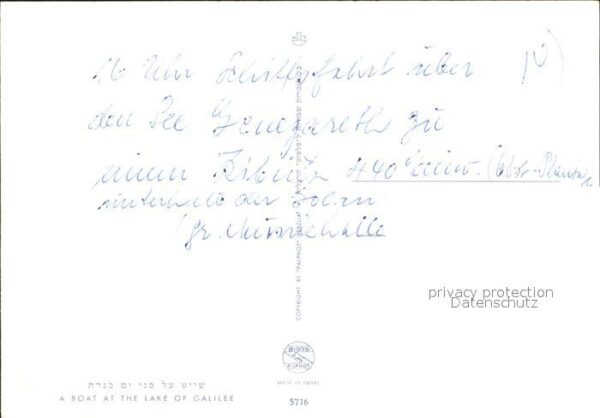 16 Uhr Schiffsfahrt über
den See Genezareth zu
einem Kibutz 440 Einw. (Obst-
unterhalb der Golan
(gr. 
IV)
COPYRIGHT BY "PALPHOT" HERZLIA
privacy protection
Datenschutz
MADE IN ISRAEL
שייט על פני ים כנרת
A BOAT AT THE LAKE OF GALILEE
5716